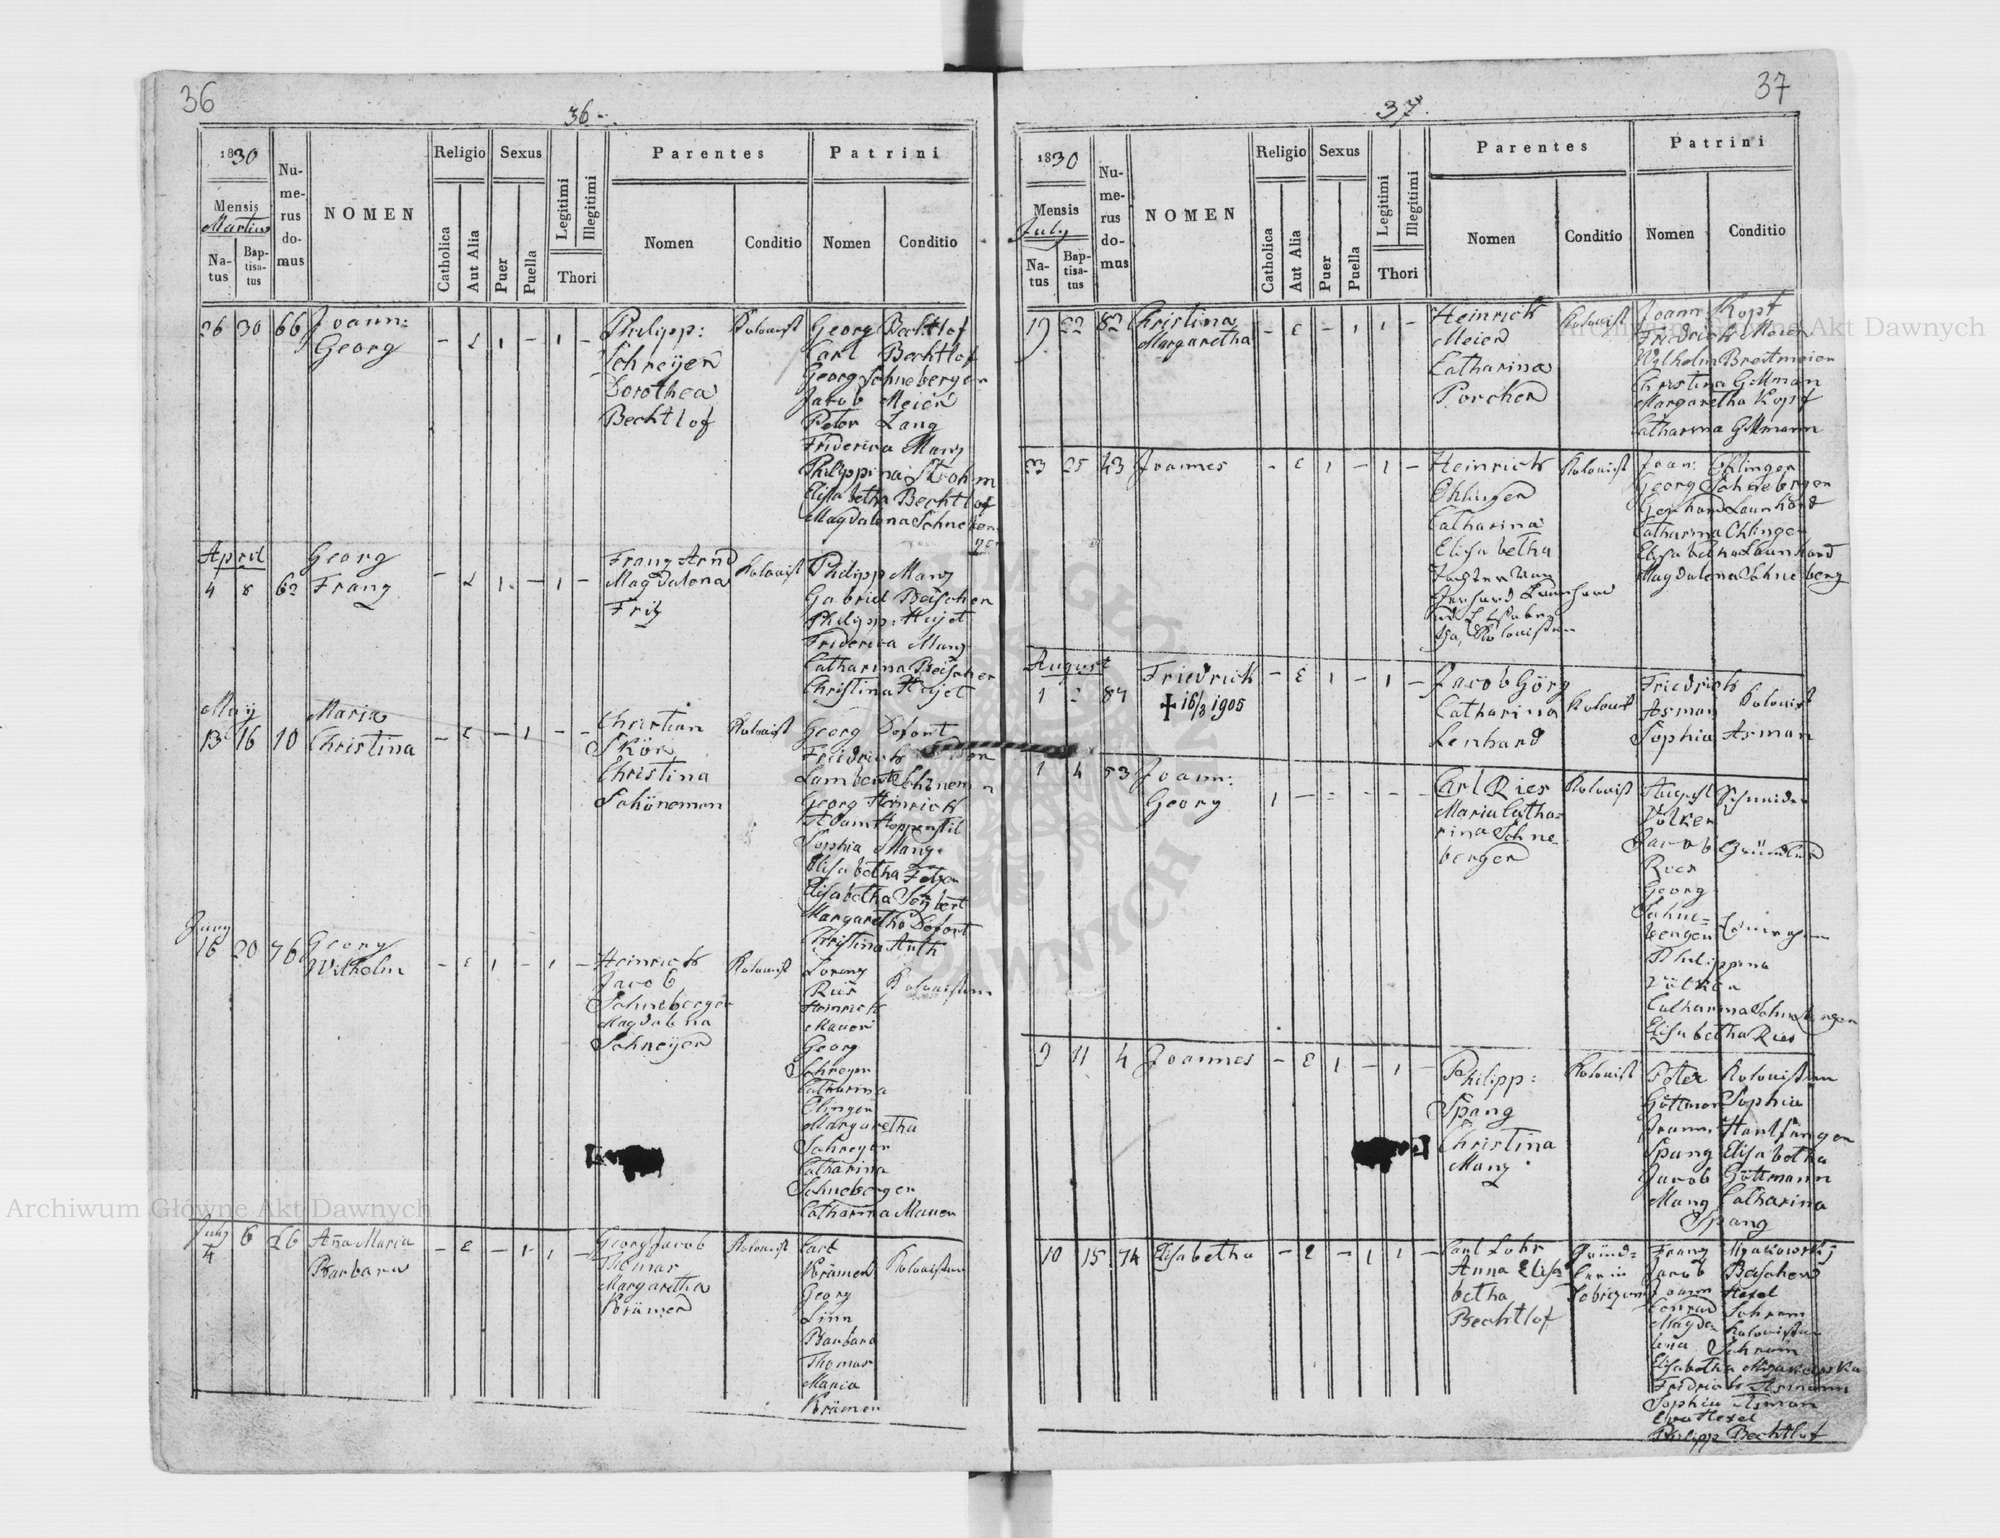 36
36
1830
Mensis
Martius
Natus
Baptisatus
Numerus domus
NOMEN
Religio
Catholica
Aut Alia
Sexus
Puer
Puella
Legitimi
Illegitimi
Thori
Parentes
Nomen
Conditio
Patrini
Nomen
Conditio
26 30 66 Joann: Georg
Philipp:
Schreÿer
Dorothea
Bechtlof
Kolonist
Georg Bechtlof
Carl Bechtlof
Georg Schneberger
Jacob Meier
Peter Lang
Friderica Manz
Philippina Strohm
Elisabetha Bechtlof
Magdalena Schneberger
April
4 8 62 Georg Franz
Franz Arnd
Magdalena
Fritz
Kolonist
Philipp Manz
Gabriel Beischer
Philipp: Hujet
Friderica Manz
Catharina Beischer
Christina Hujet
Maÿ
13 16 10 Maria Christina
Christian
Skör
Christina
Schöneman
Kolonist
Georg Defort
Friedrich
Lambert Schöneman
Georg Heinrich
Adam Hoppenstil
Sophia Manz
Elisabetha Fetzer
Elisabetha Seÿbert
Margaretha Defort
Christina Anth
Juny
16 20 76 Georg Wilhelm
Heinrich
Jacob
Schneberger
Magdalena
Schreÿer
Kolonist
Lorenz
Ries
Heinrich
Mauer
Georg
Schreyer
Catharina
Elinger
Margaretha
Schreyer
Catharina
Schneberger
Catharina Mauer
Kolonisten
July
4 6 26 Aña Maria Barbara
Georg Jacob
Thomas
Margaretha
Krämer
Kolonist
Carl
Krämer
Georg
Linn
Barbara
Thomas
Maria
Krämer
Kolonisten
37
37
1830
Mensis
July
Natus
Baptisatus
Numerus domus
NOMEN
Religio
Catholica
Aut Alia
Sexus
Puer
Puella
Legitimi
Illegitimi
Thori
Parentes
Nomen
Conditio
Patrini
Nomen
Conditio
19 22 82 Christina Margaretha
Heinrich
Meier
Catharina
Porcher
Kolonist
Joann Kopf
Friedrich
Wilhelm Breitmeier
Christina Gillman
Margaretha Kopf
Catharina Gillmann
23 25 43 Joannes
Heinrich
Ehlinger
Catharina
Elisabetha
Tochter von
Gerhard Launhard
Kolonisten
Kolonist
Joan: Ehlinger
Georg Schneberger
Gerhard Launhard
Catharina Ehlinger
Elisabetha Launhard
Magdalena Schneberg
August
1 2 87 Friedrich
✝ 16/3 1905
Jacob Görg
Catharina
Lenhard
Kolonist
Friedrich
Asman
Sophia Asman
Kolonist
1 4 53 Joann: Georg
Carl Ries
Maria Catha-
rina Schne-
berger
Kolonist
August Schneider
Völker
Jacob
Ries
Georg
Schne-
berger
Philippina
Völker
Catharina Schneberger
Elisabetha Ries
9 11 4 Joannes
Philipp:
Spang
Christina
Manz
Kolonist
Peter Kolonisten
Göttman Sophia
Joann: Hartfinger
Spang Elisabetha
Jacob Göttmann
Mang Catharina
Spang
10 15 74 Elisabetha
Carl Lohr
Anna Elisa
betha
Bechtlof
Franz Mzakowskj
Jacob Beischer
Joann Hexel
Conrad Schram
Magda- Kolonisten
lena Schram
Elisabetha Mzakowska
Fridrich Asmann
Sophia Asman
Eva Hexel
Philipp Bechtlof
Archiwum Główne Akt Dawnych
Archiwum Główne Akt Dawnych